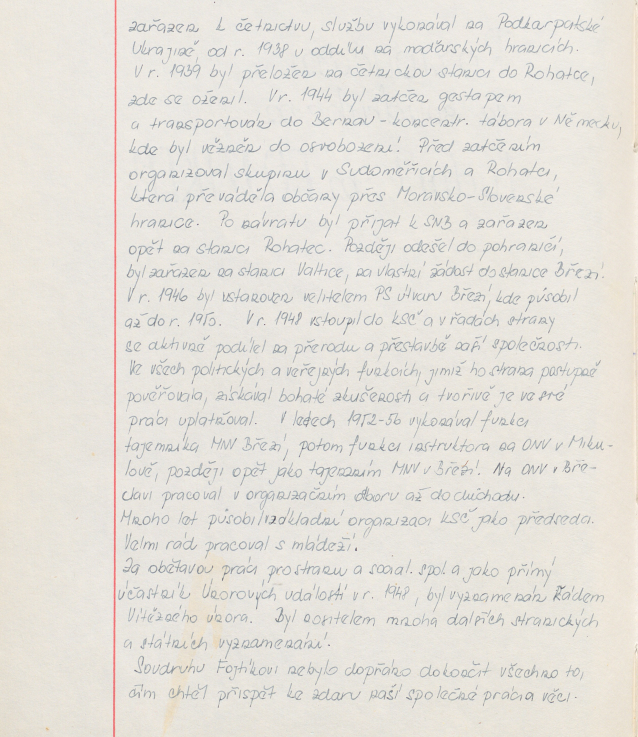 zařazen k četnictvu, službu vykonával na Podkarpatské
Ukrajině, od r. 1938 u oddílu na maďarských hranicích.
V r. 1939 byl přeložen na četnickou stanici do Rohatce,
zde se oženil. V r. 1944 byl zatčen gestapem
a transportován do Bernau - koncentr. tábora v Německu,
kde byl vězněn do osvobození! Před zatčením
organizoval skupinu v Sudoměřicích a Rohatci,
která převáděla občany přes Moravsko-Slovenské
hranice. Po návratu byl přijat k SNB a zařazen
opět na stanici Rohatec. Později odešel do pohraničí,
byl zařazen na stanici Valtice, na vlastní žádost do stanice Březí.
V r. 1946 byl ustanoven velitelem PS útvaru Březí, kde působil
až do r. 1950. V r. 1948 vstoupil do KSČ a v řadách strany
se aktivně podílel na přerodu a přestavbě naší společnosti.
Ve všech politických a veřejných funkcích, jimiž ho strana postupně
pověřovala, získával bohaté zkušenosti a tvořivě je ve své
práci uplatňoval. V letech 1952-56 vykonával funkci
tajemníka MNV Březí, potom funkci instruktora na ONV v Miku-
lově, později opět jako tajemník MNV v Březí. Na ONV v Bře-
clavi pracoval v organizačním oboru až do důchodu.
Mnoho let působil v základní organizaci KSČ jako předseda.
Velmi rád pracoval s mládeží.
Za obětavou práci pro stranu a social. spol. a jako přímý
účastník Únorových událostí v r. 1948, byl vyznamenán Řádem
Vítězného února. Byl nositelem mnoha dalších stranických
a státních vyznamenání.
Soudruhu Fojtíkovi nebylo dopřáno dokončit všechno to,
čím chtěl přispět ke zdaru naší společné práce a věci.